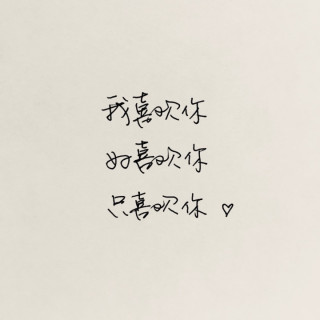 我喜欢你
好喜欢你
只喜欢你 ♡